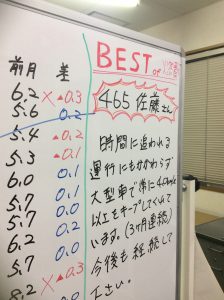 前月 差
6.2 ×▲0.3
5.6 0.2
5.4 ▲0.2
5.3 ▲0.1
6.0 0.1
5.7 0.1
5.7 0.0
5.7 0.0
6.2 0.2
5.7 0.0
×▲0.3
8.2 0.1
BEST of
465 佐藤さん
時間に追われる
運行にもかかわらず
大型車で常に4.0km/L
以上をキープしてくれて
います。(3ヶ月連続)
今後も継続して
下さい。